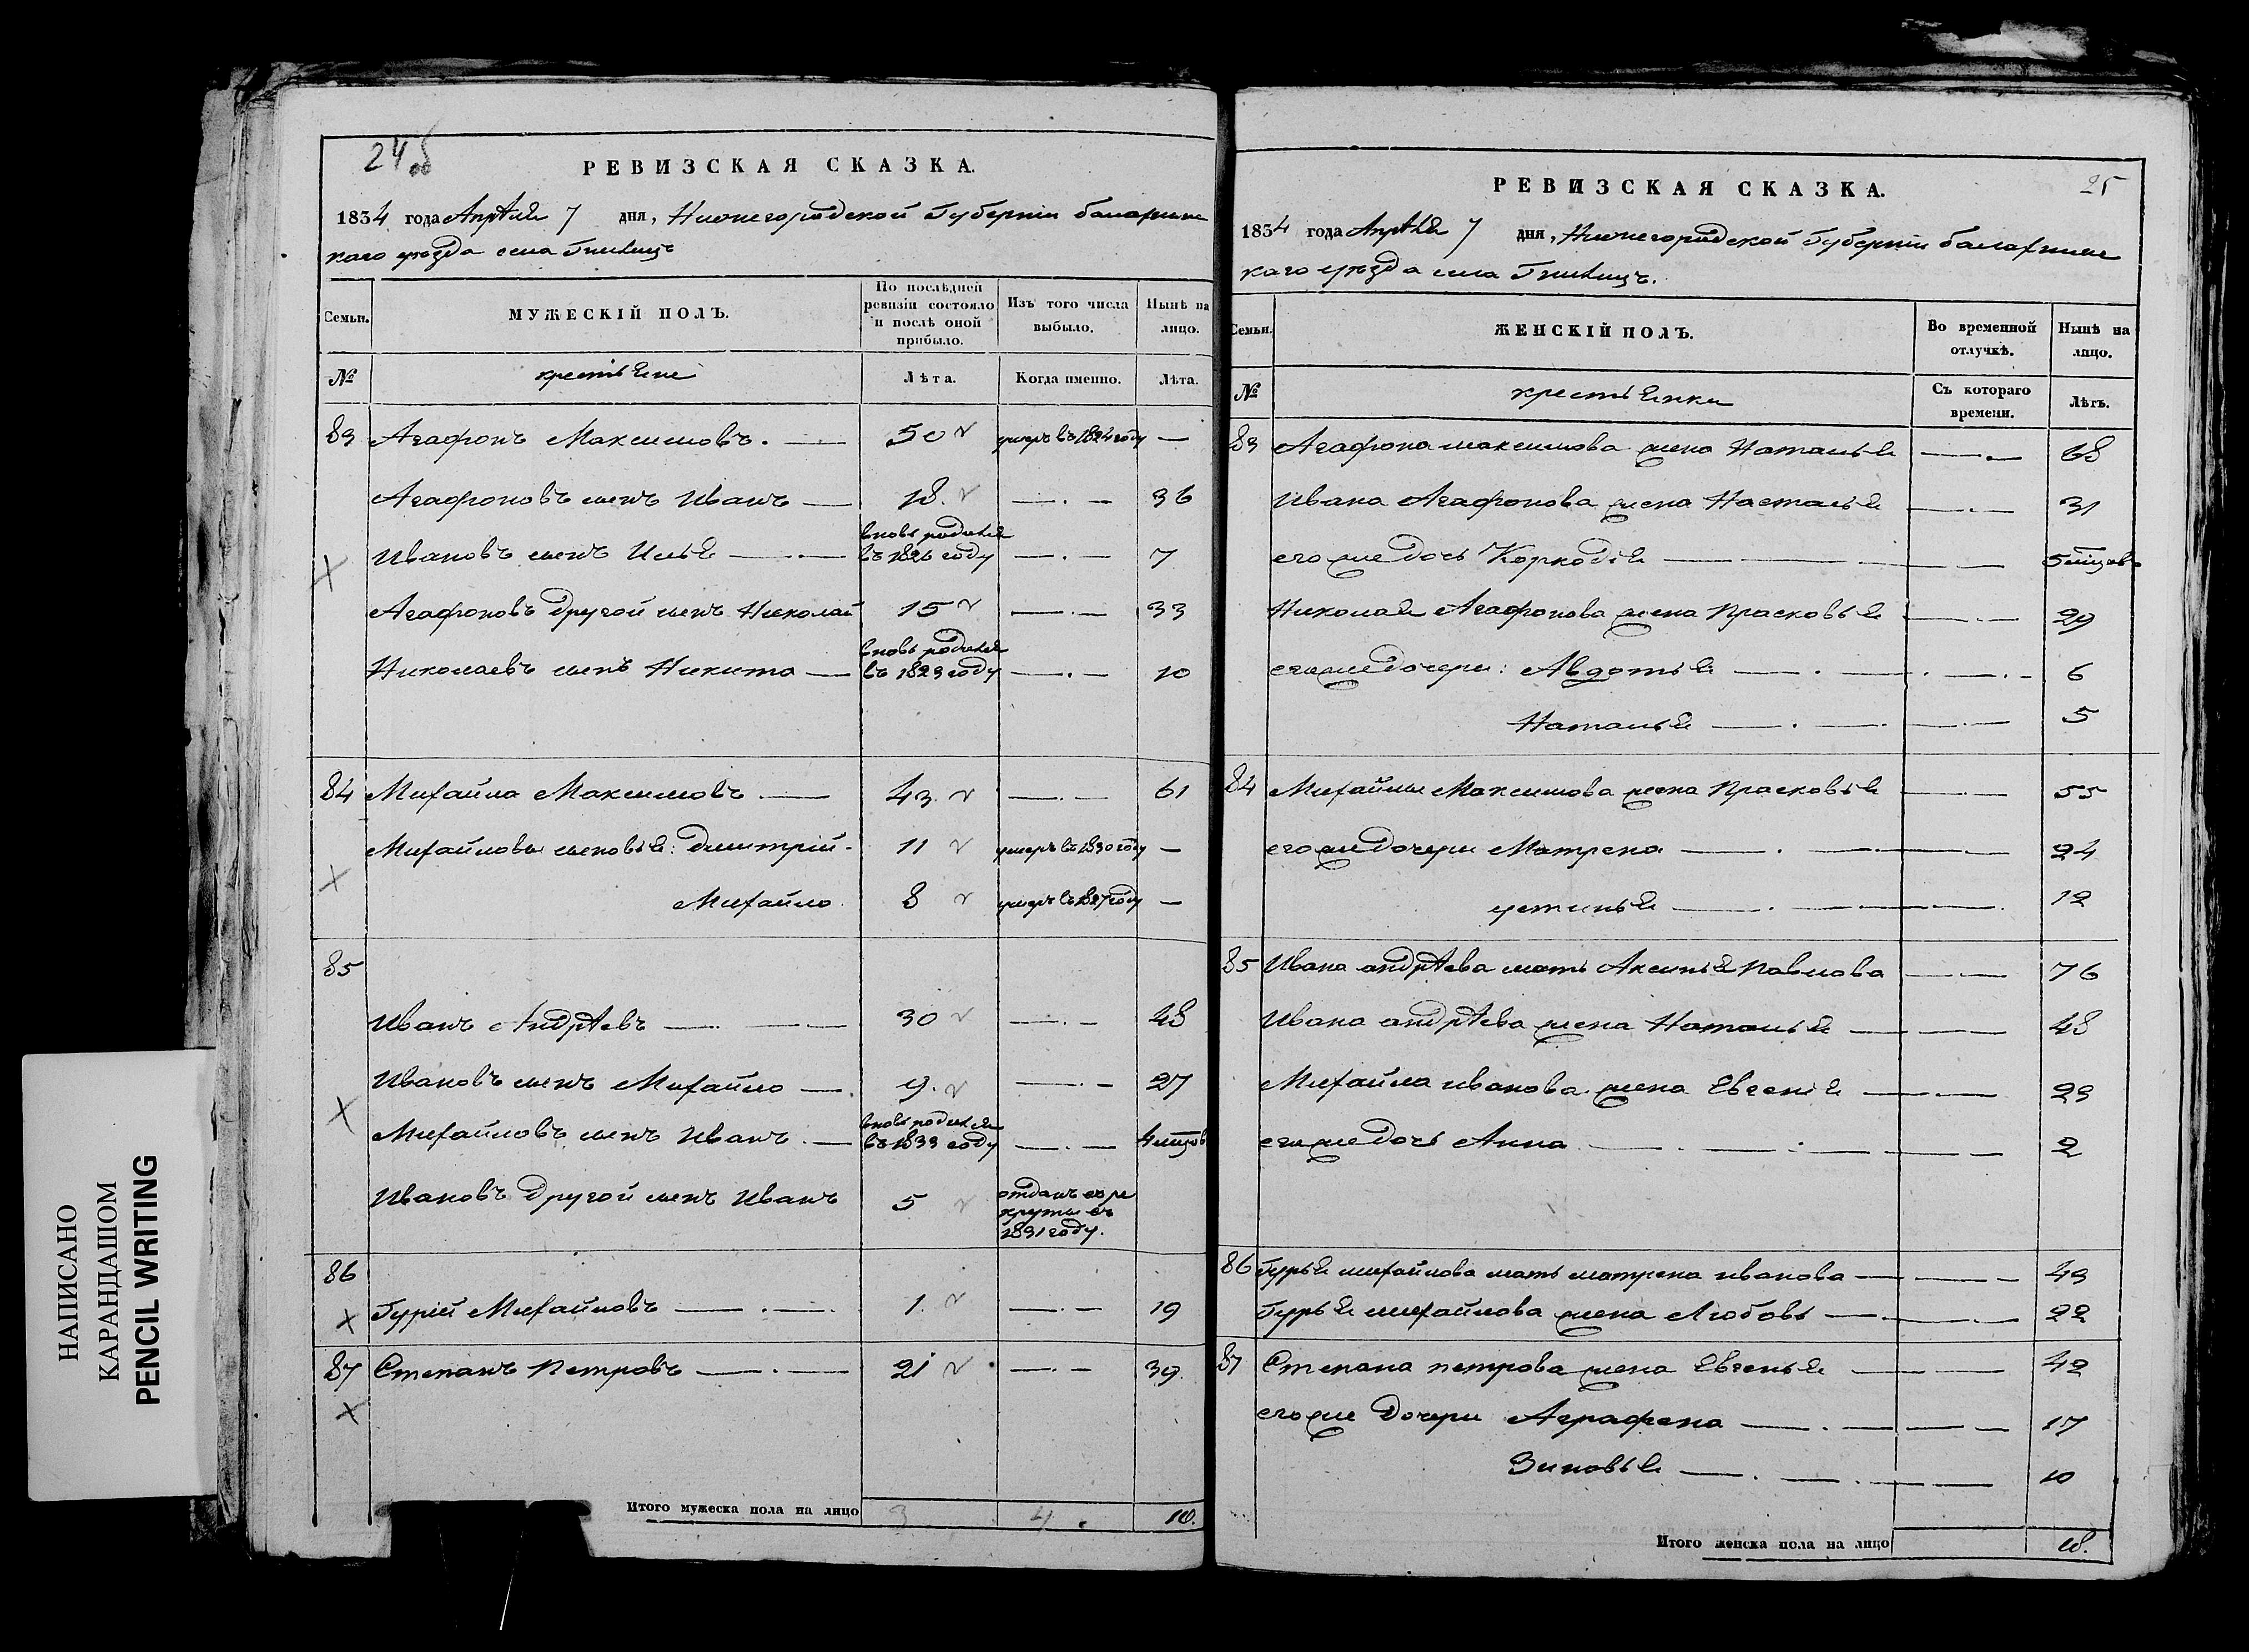 НАПИСАНО
КАРАНДАШОМ
PENCIL WRITING
24об
РЕВИЗСКАЯ СКАЗКА.
1834 года Апрѣля 7 дня, Нижегородской Губерніи балахнинс
каго уѣзда села Гнилицъ
Семьи. МУЖЕСКІЙ ПОЛЪ. По послѣдней ревизіи состояло и послѣ оной прибыло. Изъ того числа выбыло. Нынѣ на лицо.
№ крестьяне Лѣта. Когда именно. Лѣта.
83 Агафонъ Максимовъ. 50 умеръ въ 1824 году —
Агафоновъ сынъ Иванъ — 18. — 36
Ивановъ сынъ Илья — вновь родился въ 1826 году — 7
Агафоновъ другой сынъ Николай 15 — 33
Николаевъ сынъ Никита — вновь родился въ 1823 году — 10
84 Михайла Максимовъ — 43. — 61
Михайловы сыновья: Дмитрій - 11 умеръ въ 1830 году —
Михайло. 8 умеръ въ 1827 году —
85
Иванъ Андрѣевъ — 30 — 48
Ивановъ сынъ Михайло — 9. — 27
Михайловъ сынъ Иванъ. — вновь родился въ 1833 году — 4 мѣсцов
Ивановъ другой сынъ Иванъ 5 отданъ въ ре
круты въ
1831 году.
86
Гурій Михайловъ — 1. — 19
87 Степанъ Петровъ — 21 — 39.
Итого мужеска пола на лицо 3 4. 10.
25
РЕВИЗСКАЯ СКАЗКА.
1834 года Апрѣля 7 дня, Нижегородской Губерніи балахнинс
каго уѣзда села Гнилицъ.
Семьи. ЖЕНСКІЙ ПОЛЪ. Во временной отлучкѣ. Нынѣ на лицо.
№ крестьянки Съ котораго времени. Лѣтъ.
83 Агафона максимова жена Наталья — 68
Ивана Агафонова жена Насталья — 31
его же дочь Коркодія — 5 мѣсцов
Николая Агафонова жена Прасковья — 29
его же дочери: Авдотья — 6
Наталья — 5
84 Михайлы Максимова жена Прасковья — 55
его же дочери Матрена — 24
устинья — 12
85 Ивана андрѣева мать Аксинья Павлова — 76
Ивана андрѣева жена Наталья — 48
Михайла иванова жена Евгенія — 23
его же дочь Анна — 2
86 Гурья михайлова мать матрена иванова — 43
Гурья михайлова жена Любовь — 22
87 Степана петрова жена Евгенья — 42
его же дочери Аграфена — 17
Зиновья — 10
Итого женска пола на лицо 18.